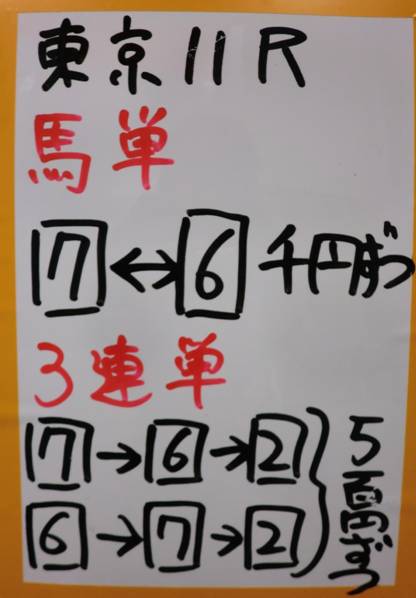 東京11R
馬単
7↔6 千円ずつ
3連単
7→6→2
6→7→2
5百円ずつ